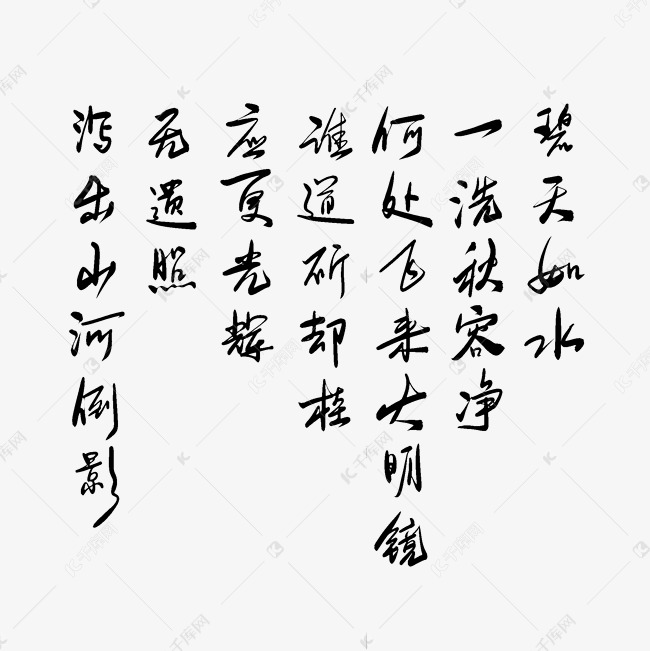 碧天如水
一洗秋容净
何处飞来大明镜
谁道斫却桂
应更光辉
无遗照
泻出山河倒影
千库网